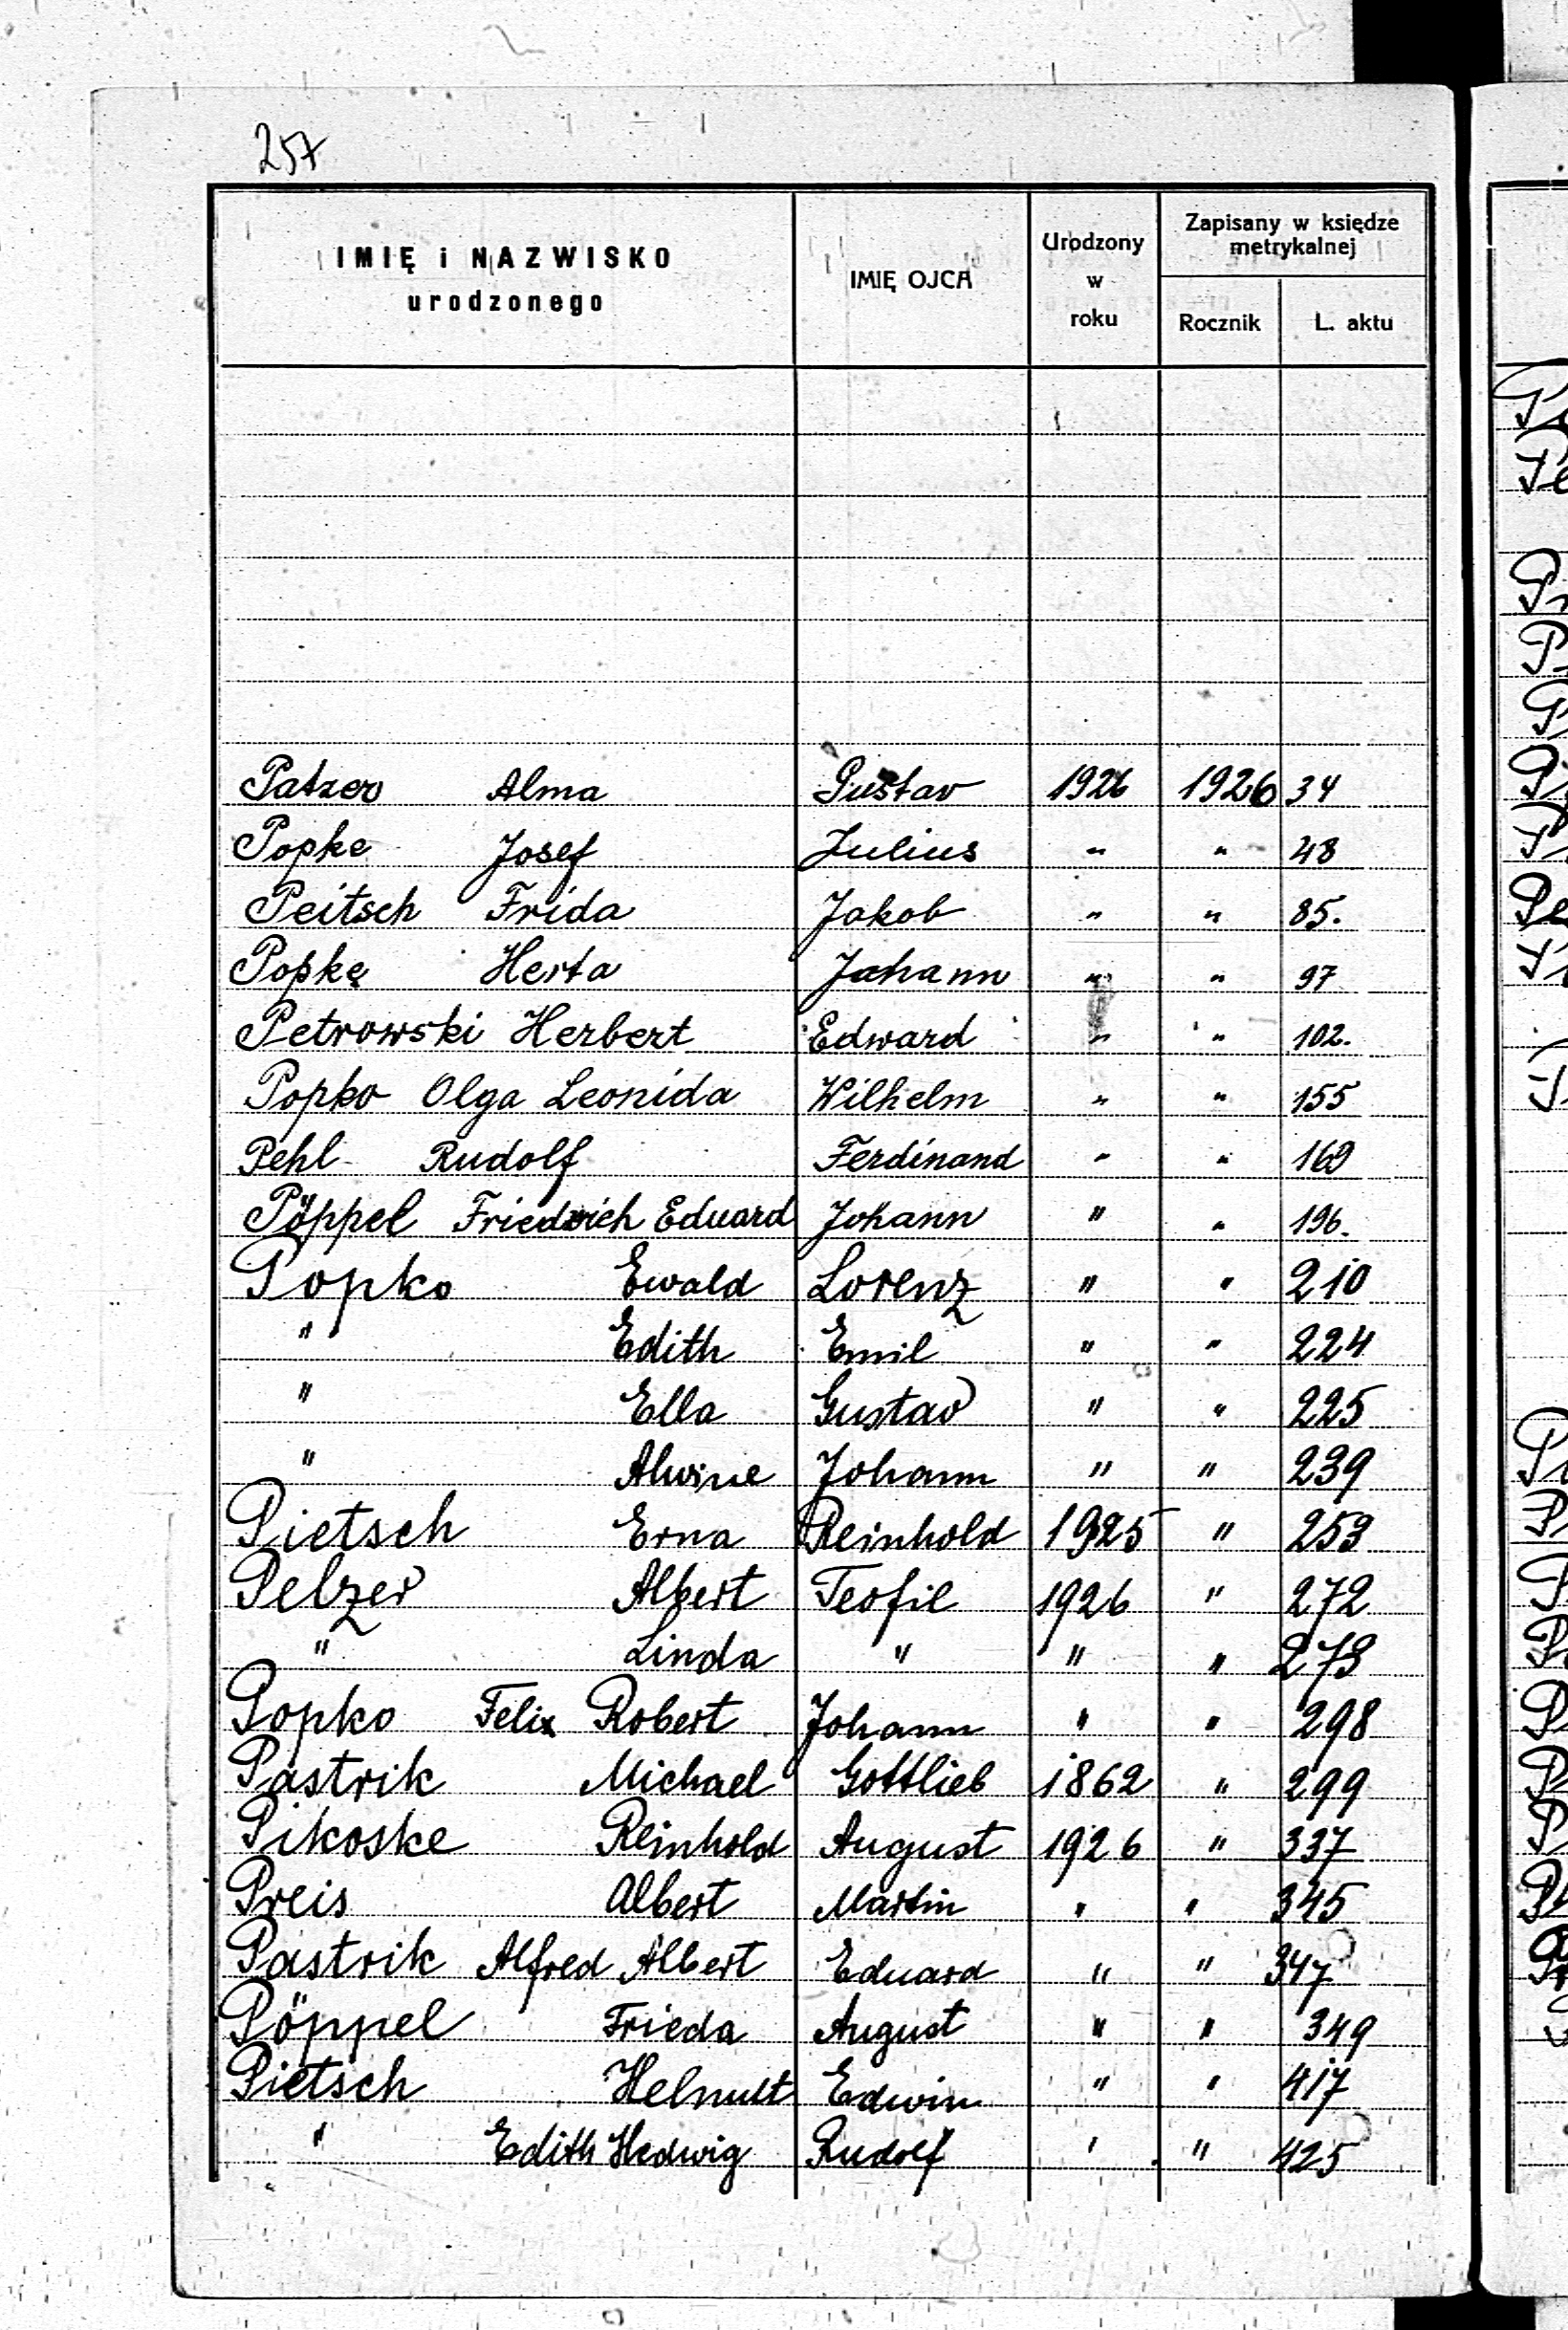 257
IMIĘ i NAZWISKO urodzonego IMIĘ OJCA Urodzony w roku Zapisany w księdze metrykalnej Rocznik L. aktu
Patzer Alma Gustav 1926 1926 34
Popke Josef Julius " " 48
Peitsch Frida Jakob " " 85.
Popke Herta Johann " " 97
Petrowski Herbert Edward " " 102.
Popko Olga Leonida Wilhelm " " 155
Pehl Rudolf Ferdinand " " 169
Pöppel Friedrich Eduard Johann " " 196.
Popko Ewald Lorenz " " 210
" Edith Emil " " 224
" Ella Gustav " " 225
" Alwine Johann " " 239
Pietsch Erna Reinhold 1925 " 253
Pelzer Albert Teofil 1926 " 272
" Linda " " " 273
Popko Felix Robert Johann " " 298
Pastrik Michael Gottlieb 1862 " 299
Pikoske Reinhold August 1926 " 337
Preis Albert Martin " " 345
Pastrik Alfred Albert Eduard " " 347
Pöppel Frieda August " " 349
Pietsch Helmut Edwin " " 417
" Edith Hedwig Rudolf " " 425